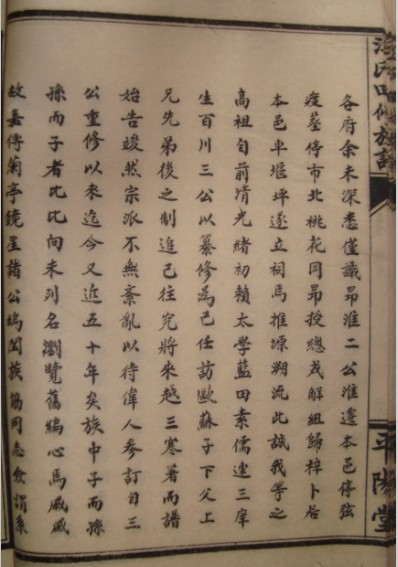 氏四修族譜
平陽堂
各府余未深悉僅識昴淮二公淮遷本邑停弦
疫墓停市北桃花冈昴授總戎解組歸棹卜居
本邑平堰坪遂立祠焉推源朔流此誠我等之
高祖自前清光緒初賴太學藍田素儒連三摩
生百川三公以纂修為己任訪歐蘇子下父上
兄先弟後之制追已往究將來越三寒暑而譜
始告竣然宗派不無紊亂以待偉人參訂自三
公重修以来迄今又近五十年矣族中子而孫
孫而子者比比向未列名瀏覽舊編心焉戚戚
故嘉傳菊亭鏡星諸公鳩闔族協同志飲捐系